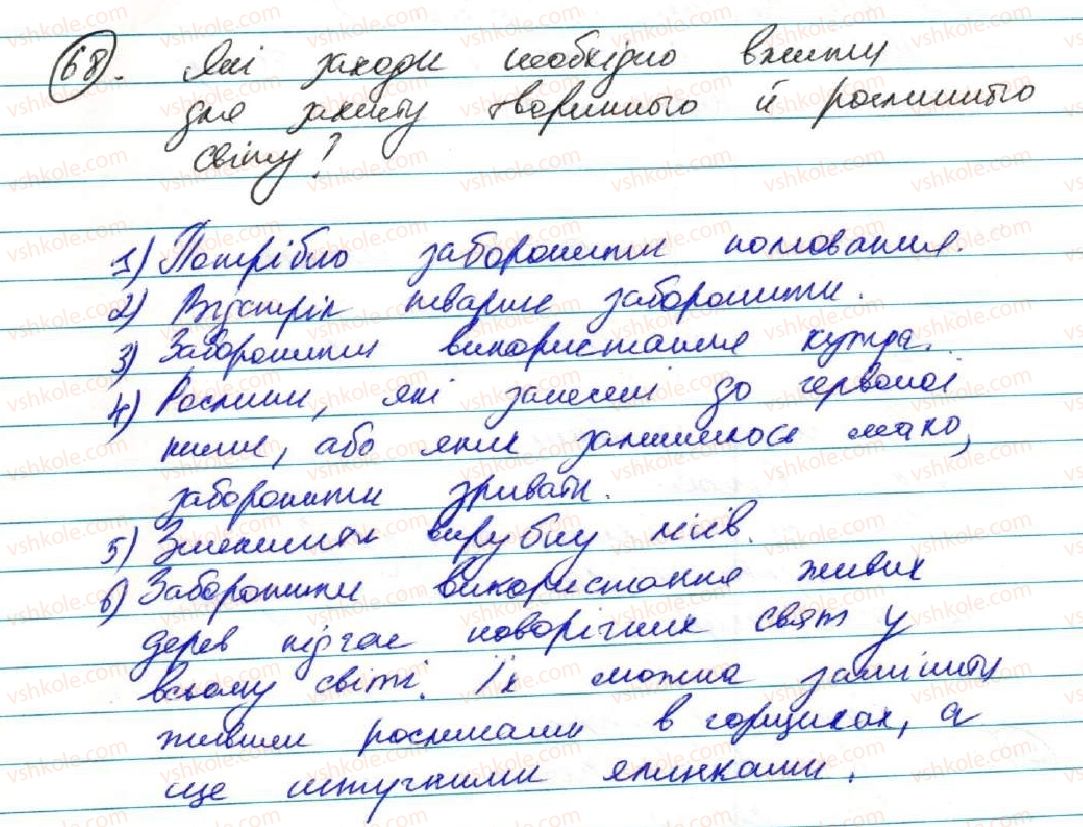 68. Які заходи необхідно вжити
для захисту тваринного й рослинного
світу?
1) Потрібно заборонити полювання.
2) Відстріл тварин заборонити.
3) Заборонити використання хутра.
4) Рослини, які занесені до червоної
книги, або яких залишилось мало,
заборонити зривати.
5) Зменшити вирубку лісів.
6) Заборонити використання живих
дерев під час новорічних свят у
всьому світі. Їх можна замінити
живими рослинами в горщиках, а
ще штучними ялинками.